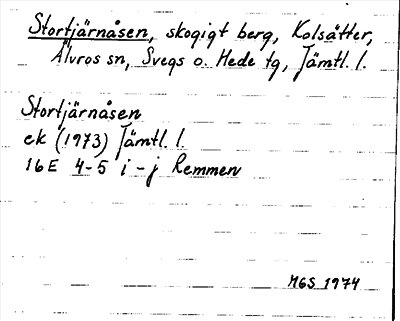 Stortjärnåsen, skogigt berg, Kolsätter,
Älvros sn, Svegs o. Hede tg, Jämtl. l.
Stortjärnåsen
ek (1973) Jämtl. l.
16E 4-5 i-j Remmen
MGS 1974